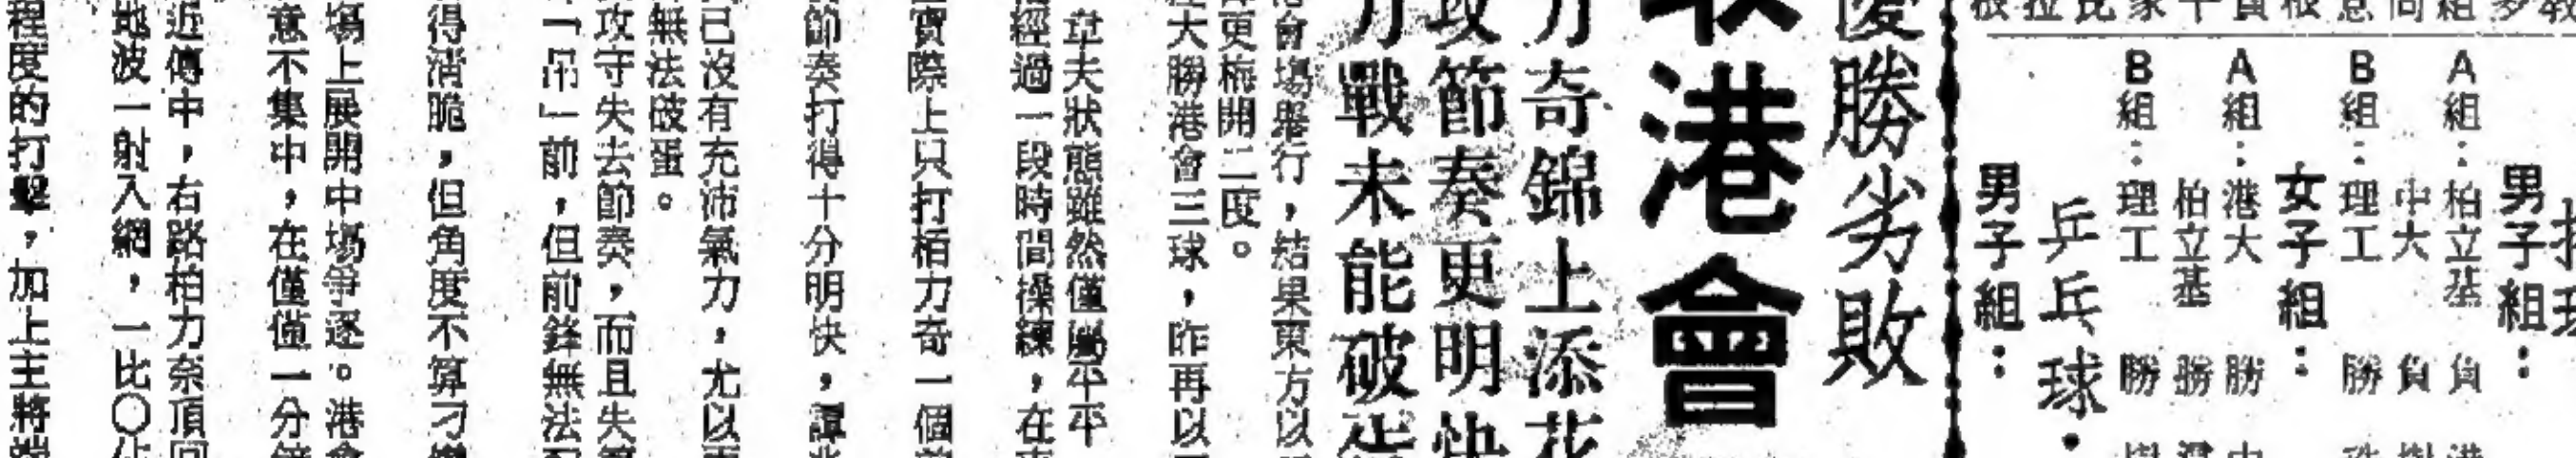 教
多
組
尚
意
根
負
平
家
比
拉
根
男子組：
A組：柏立基 負 港
中大 負 樹
B組：理工 勝 珠
女子組：
A組：港大 勝 中
柏立基 勝 浸
B組：理工 勝 樹
乒乓球・
男子組：
優勝劣敗
港會
力奇錦上添花
攻節奏更明快
力戰未能破
會場舉行，結果東方以
更梅開二度。
大勝港會三球，昨再以
章夫狀態雖然僅屬平平
經過一段時間操練，在
實際上只打栢力奇一個
節奏打得十分明快，譚
已沒有充沛氣力，尤以
無法破蛋。
攻守失去節奏，而且失
「吊」前，但前鋒無法
得清脆，但角度不算刁
場上展開中場爭逐。港會
意不集中，在僅值一分鐘
近傳中，右路柏力奈頂回
地波一射入網，一比〇佔
程度的打擊，加上主將